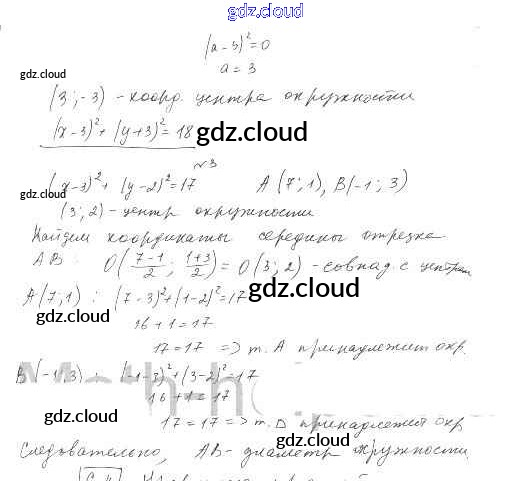 gdz.cloud
(a-3)²=0
gdz.cloud
a = 3
(3;-3) - коорд. центра окружности
(x-3)²+(y+3)²=18 gdz.cloud
N3
(x-3)²+(y-2)²=17 A(7;1), B(-1;3)
(3;2)-центр окружности
Найдем координаты середины отрезка
gdz.cloud
AB: O(7-1/2; 1+3/2)=O(3;2)-совпад. с центром
A(7;1): (7-3)²+(1-2)²=17 gdz.cloud
gdz.cloud
16+1=17
17=17 => т. A принадлежит окр.
B(-1;3): (-1-3)²+(3-2)²=17
16+1=17
gdz.cloud
17=17 => т. D принадлежит окр
Следовательно, AB-диаметр окружности.
gdz.cloud
C-4